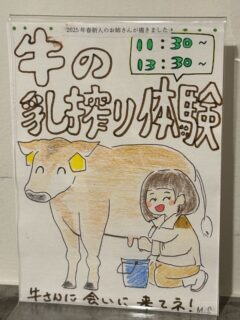 2025年春新人のお姉さんが描きました！
牛の
11:30～
13:30～
乳搾り体験
牛さんに会いに来てネ！